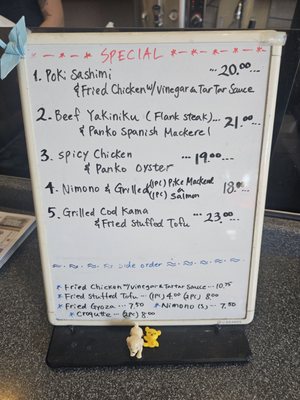 * - * - * - * SPECIAL * - * - * - * -
1. Poki Sashimi ... 20.00...
& Fried Chicken w/ Vinegar & Tar Tar Sauce
2. Beef Yakiniku (Flank steak) ... 21.00...
& Panko Spanish Mackerel
3. Spicy Chicken ... 19.00...
& Panko Oyster
4. Nimono & Grilled (1pc) Pike Mackerel 18.00...
& (1pc) Salmon
5. Grilled Cod Kama ... 23.00...
& Fried Stuffed Tofu
side order
* Fried Chicken w/ vinegar & Tartar Sauce ... 10.75
* Fried Stuffed Tofu ... (1pc) 4.00 (2pc) 8.00
* Fried Gyoza ... 7.50 * Nimono (s) ... 7.50
* Croquette ... (2pc) 8.00